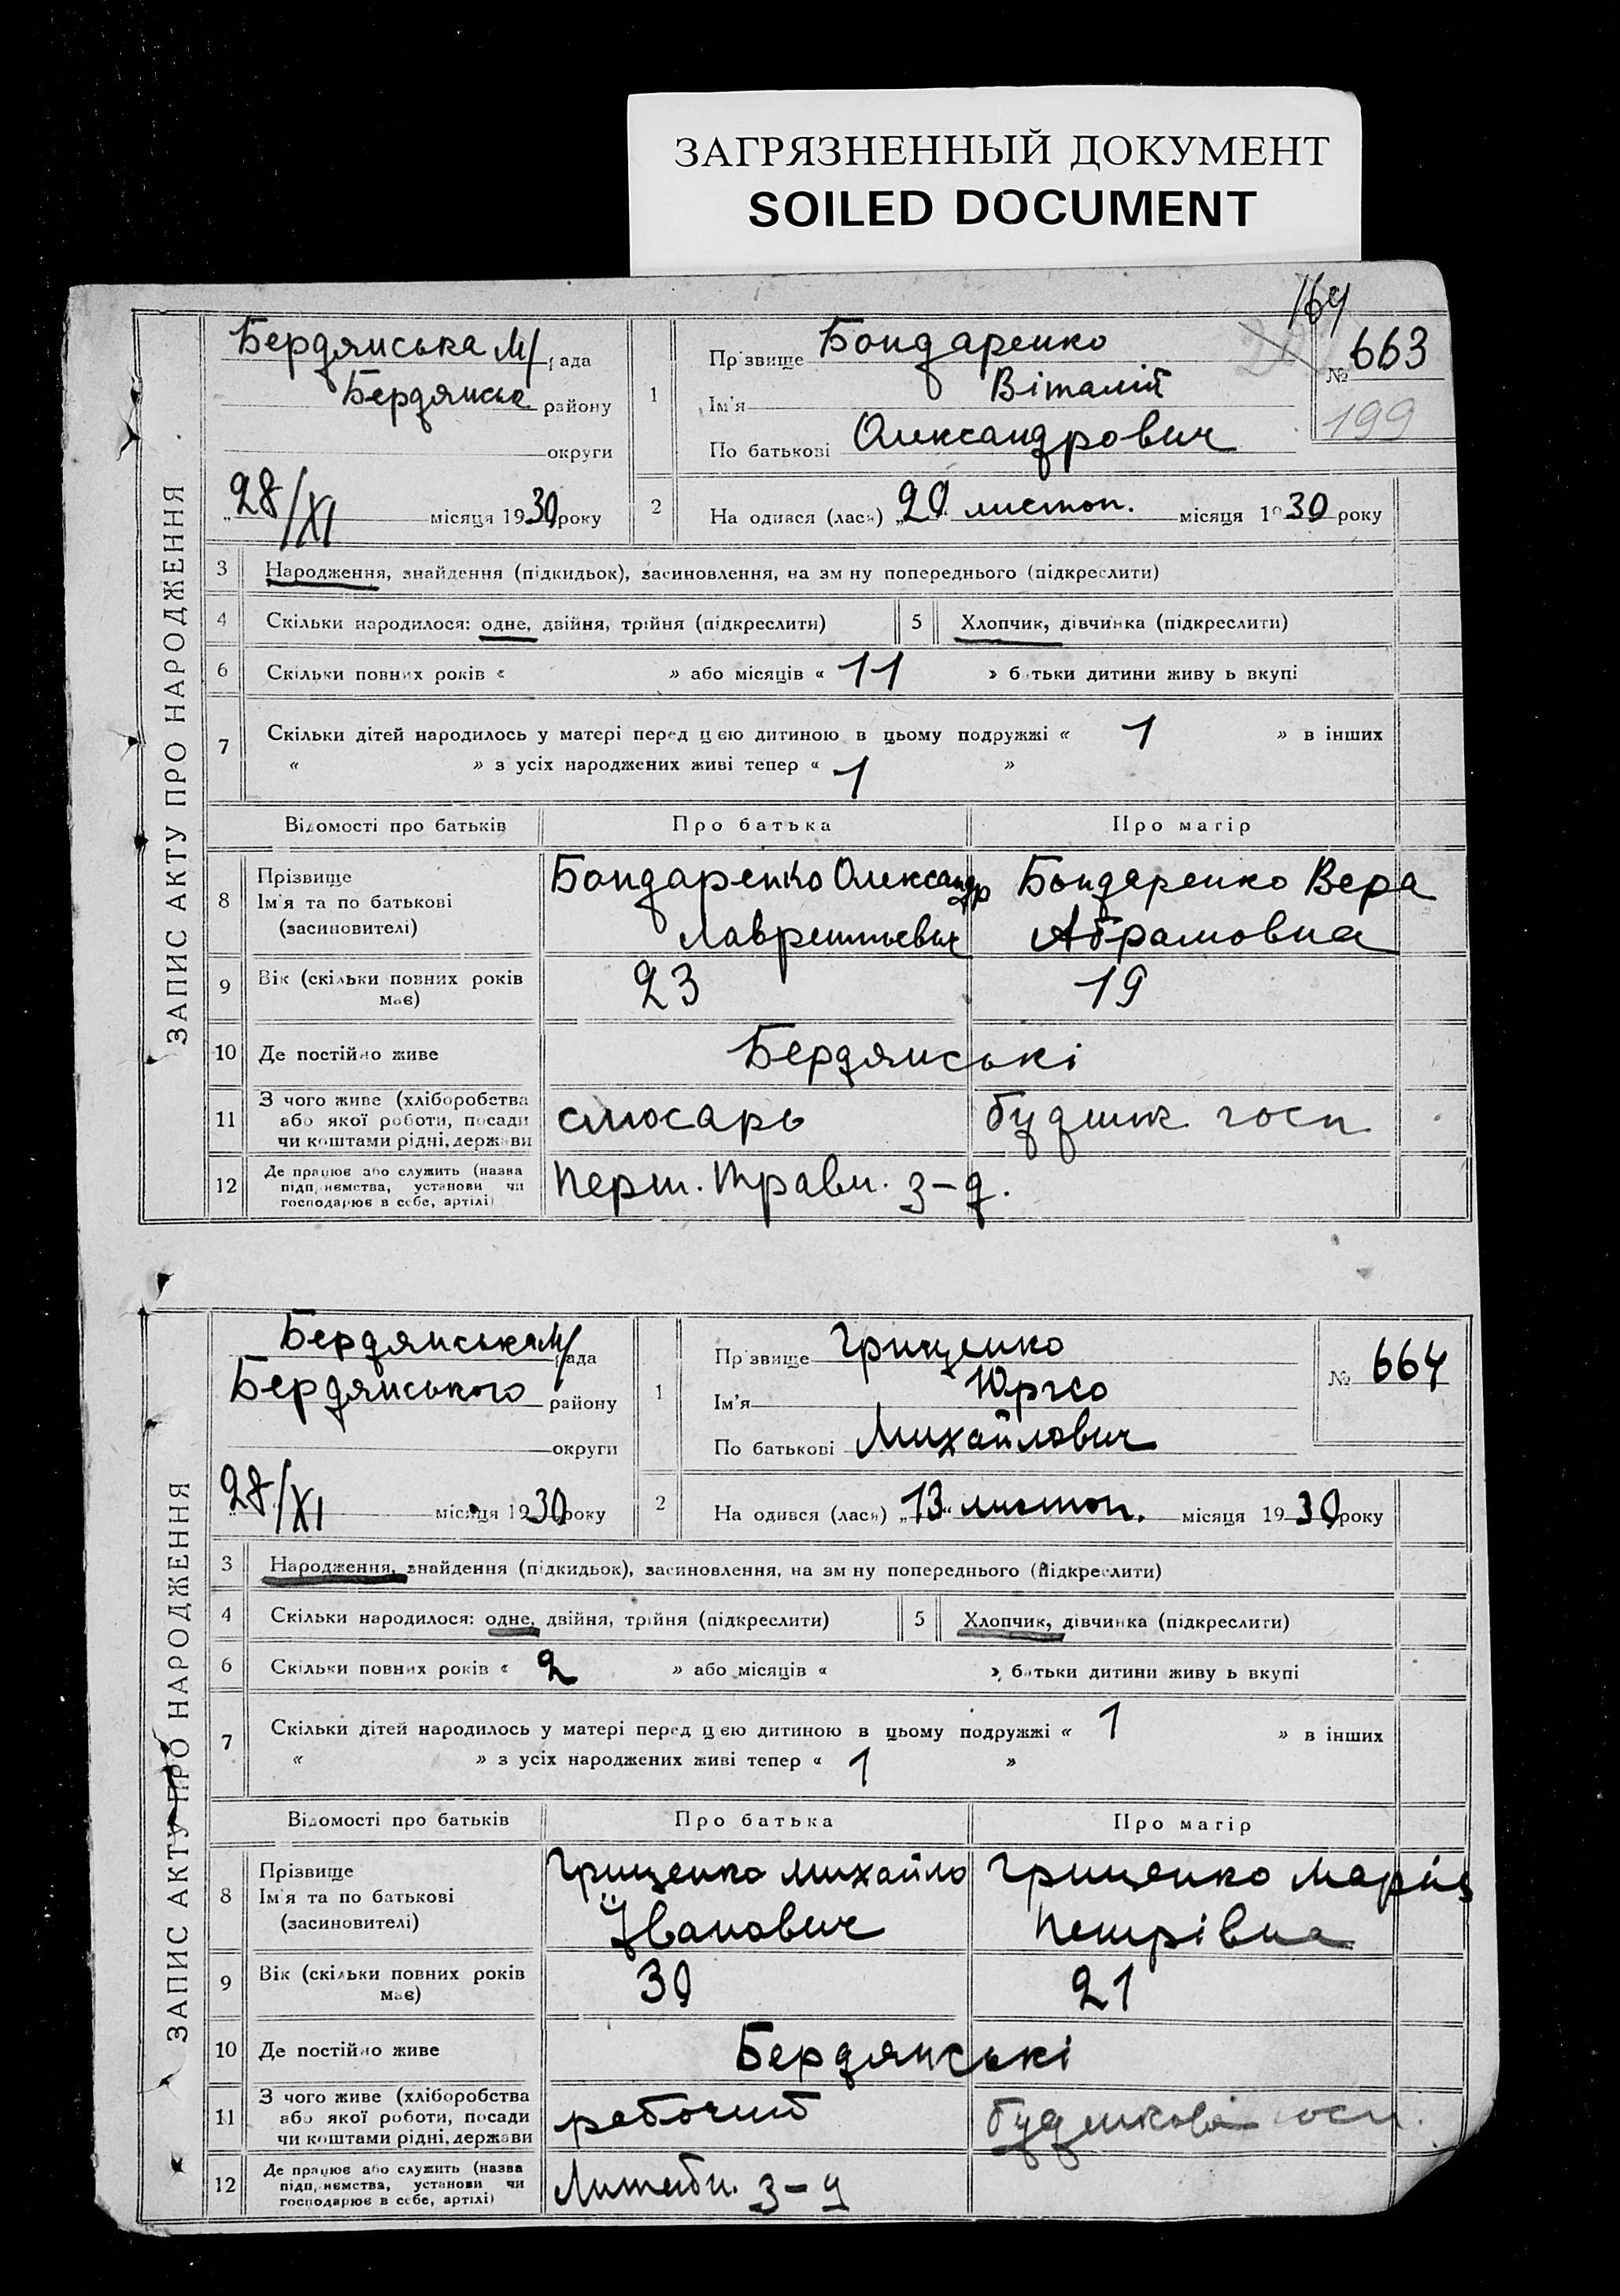 ЗАГРЯЗНЕННЫЙ ДОКУМЕНТ
SOILED DOCUMENT
164
ЗАПИС АКТУ ПРО НАРОДЖЕННЯ
Бердянська м/рада
Бердянськ району
округи
28/XI місяця 1930 року
1
Прізвище Бондаренко
Ім'я Віталій
По батькові Олександрович
№ 663
199
2
На одився (лася) „20 листоп. місяця 1930 року
3 Народження, знайдення (підкидьок), засиновлення, на зм ну попереднього (підкреслити)
4 Скільки народилося: одне, двійня, трійня (підкреслити) 5 Хлопчик, дівчинка (підкреслити)
6 Скільки повних років « » або місяців « 11 » батьки дитини живу ь вкупі
7 Скільки дітей народилось у матері перед цією дитиною в цьому подружжі « 1 » в інших
« » з усіх народжених живі тепер « 1 »
Відомості про батьків Про батька Про матір
8 Прізвище
Ім'я та по батькові
(засиновителі)
Бондаренко Олександр
Лаврентьевич
Бондаренко Вера
Абрамовна
9 Вік (скільки повних років
має)
23 19
10 Де постійно живе Бердянські
11 З чого живе (хліборобства
або якої роботи, посади
чи коштами рідні, держави
слюсарь будник госп
12 Де працює або служить (назва
підприємства, установи чи
господарює в себе, артілі)
Перш. Травн. з-д.
ЗАПИС АКТУ ПРО НАРОДЖЕННЯ
Бердянська м/рада
Бердянського району
округи
28/XI місяця 1930 року
1
Прізвище Гриценко
Ім'я Юрко
По батькові Михайлович
№ 664
2
На одився (лася) „13" листоп. місяця 1930 року
3 Народження, знайдення (підкидьок), засиновлення, на зм ну попереднього (підкреслити)
4 Скільки народилося: одне, двійня, трійня (підкреслити) 5 Хлопчик, дівчинка (підкреслити)
6 Скільки повних років « 2 » або місяців « » батьки дитини живу ь вкупі
7 Скільки дітей народилось у матері перед цією дитиною в цьому подружжі « 1 » в інших
« » з усіх народжених живі тепер « 1 »
Відомості про батьків Про батька Про матір
8 Прізвище
Ім'я та по батькові
(засиновителі)
Гриценко Михайло
Іванович
Гриценко Марія
Петрівна
9 Вік (скільки повних років
має)
30 21
10 Де постійно живе Бердянські
11 З чого живе (хліборобства
або якої роботи, посади
чи коштами рідні, держави
рабочий будинкова госп.
12 Де працює або служить (назва
підприємства, установи чи
господарює в себе, артілі)
з-д